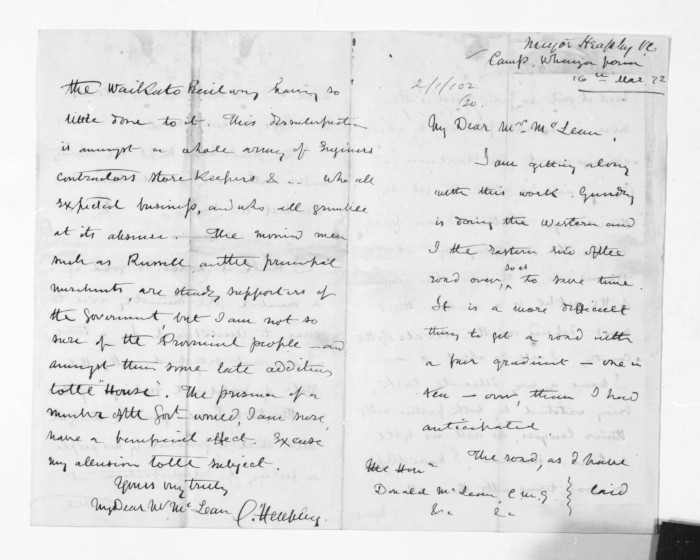 Major Heaphy VC
Camp Whanga
16th Mar 72
2/1/102
/20.
My Dear Mr McLean,
I am getting along
with this work. Gundry
is doing the Western and
I the Eastern side of the
road over, so as to save time.
It is a more difficult
thing to get a road with
a fair gradient – one in
ten – over, than I had
anticipated.
The road, as I have
laid
The Honble
Donald McLean, C.M.G.
&c. &c.
the Waikato Railway having so
little done to it. This dissatisfaction
is amongst a whole army of Engineers
contractors store keepers & – who all
expected business, and who all grumble
at its absence. The monied men
such as Russell, and the principal
merchants, are steady supporters of
the Government, but I am not so
sure of the Provincial people – and
amongst them some late additions
to the "House". The presence of a
member of the Govt would, I am sure,
have a beneficial effect. Excuse
my allusion to the subject.
Yours very truly
My Dear Mr McLean C. Heaphy.